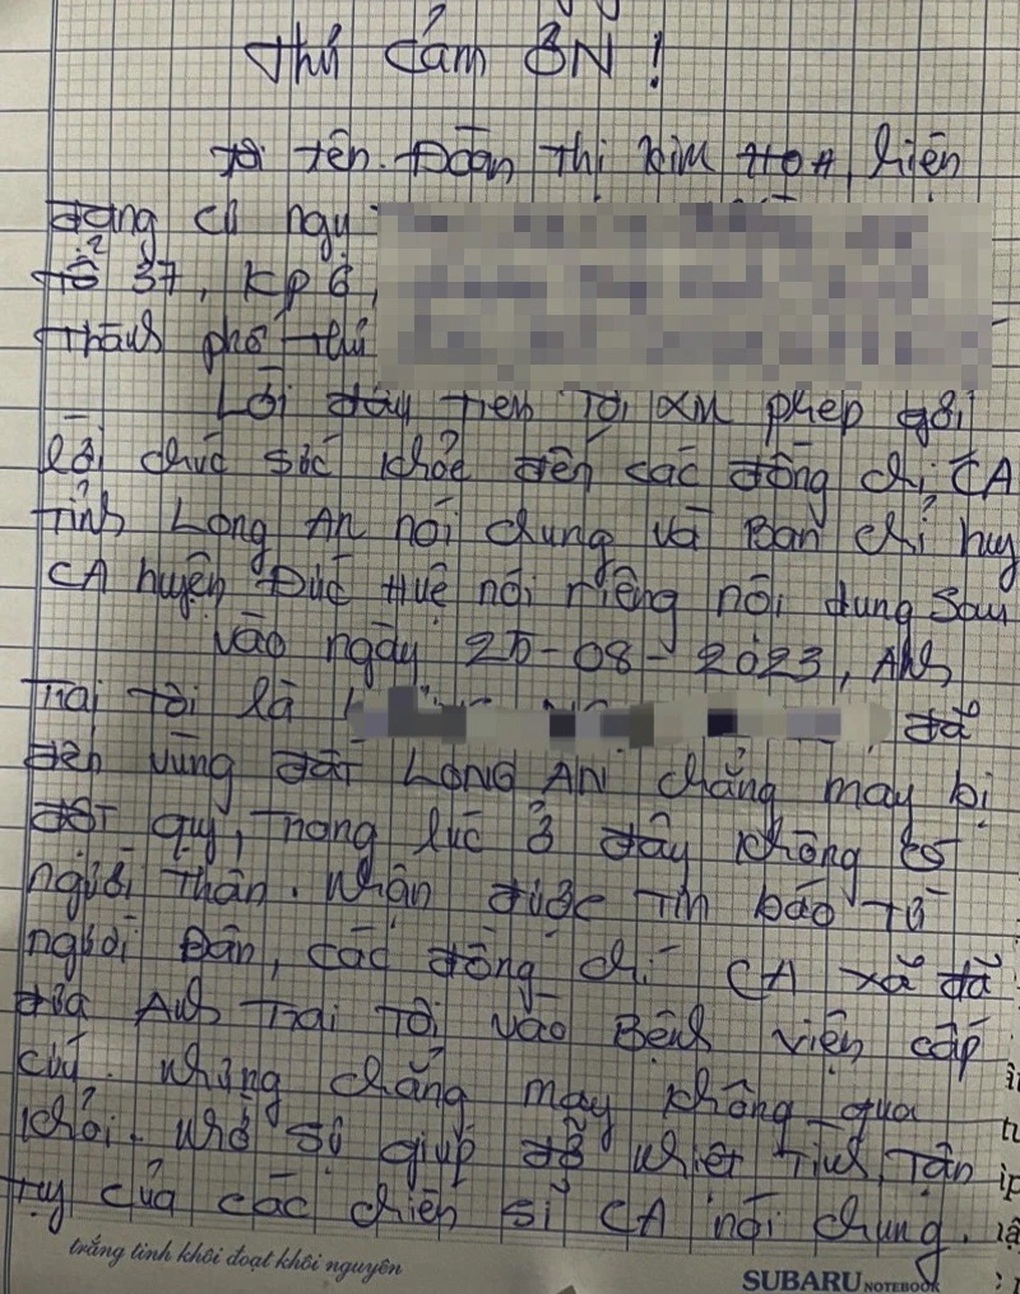 Thư Cảm ƠN !
Tôi tên. Đoàn Thị Kim HOA, hiện
đang cư ngụ
tổ 37, KP 6,
Thành phố Thủ
Lời đầy tiên Tôi xin phép gởi
lời chúc sức khỏe đến các đồng chí CA
Tỉnh Long An nói chung và Ban chỉ huy
CA huyện Đức Huệ nói riêng nội dung sau
vào ngày 25-08-2023, Anh
Trai tôi là đã
đến vùng đất LONG AN chẳng may bị
đột quỵ, Trong lúc ở đây không có
người Thân. Nhận được Tin báo từ
người Dân, các đồng chí CA xã đã
đưa Anh Trai Tôi vào Bệnh viện cấp
cứu. Nhưng chẳng may không qua
khỏi. Nhờ sự giúp đỡ nhiệt Tình, Tận
Tụy của các chiến sĩ CA nói chung.
trắng tinh khôi đoạt khôi nguyên
SUBARU NOTEBOOK